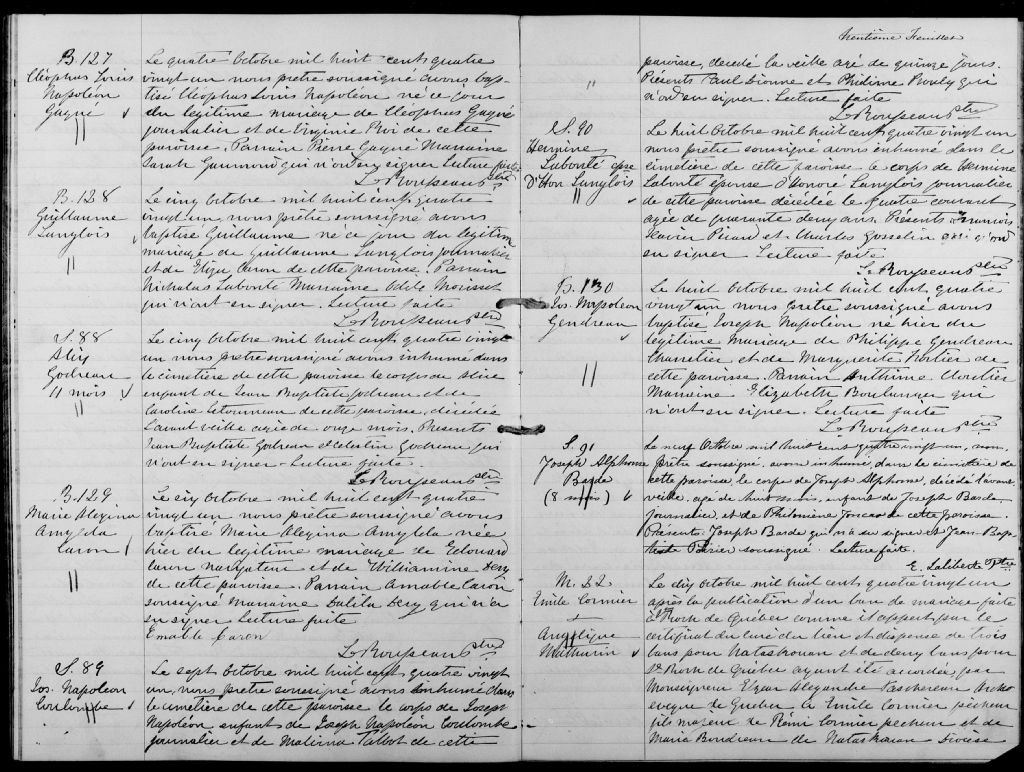 B. 127
Cléophas Louis
Napoléon
Gagné
Le quatre Octobre mil huit cent quatre
vingt un nous prêtre soussigné avons bap-
tisé Cléophas Louis Napoléon né ce jour
du légitime mariage de Cléophas Gagné
journalier et de Virginie Roi de cette
paroisse. Parrain Pierre Gagné Marraine
Sarah qui n'ont su signer Lecture faite
L. Rousseau Ptre
B. 128
Guillaume
Langlois
Le cinq Octobre mil huit cent quatre
vingt un nous prêtre soussigné avons
baptisé Guillaume né ce jour du légitime
mariage de Guillaume Langlois journalier
et de Caron de cette paroisse. Parrain
Nicholas Labonté Marraine Odile Morisset
qui n'ont su signer. Lecture faite
L. Rousseau Ptre
S. 88
Godreau
11 mois
Le cinq Octobre mil huit cent quatre vingt
un nous prêtre soussigné avons inhumé dans
le cimetière de cette paroisse le corps de
enfant de Jean Baptiste Godreau et de
Caroline Letourneau de cette paroisse, décédée
l'avant veille agée de onze mois. Présents
Jean Baptiste Godreau et Celestin Godreau qui
n'ont su signer. Lecture faite.
L. Rousseau Ptre
B. 129
Marie Alexina
Amylda
Caron
Le six Octobre mil huit cent quatre
vingt un nous prêtre soussigné avons
baptisé Marie Alexina Amylda née
hier du légitime mariage de Edouard
Caron navigateur et de Williamine Dery
de cette paroisse. Parrain Amable Caron
soussigné Marraine Dalila Dery qui n'a
su signer Lecture faite
Emable Caron
L. Rousseau Ptre
S. 89
Jos. Napoléon
Coulombe
Le sept Octobre mil huit cent quatre vingt
un, nous prêtre soussigné avons inhumé dans
le cimetière de cette paroisse le corps de Joseph
Napoléon, enfant de Joseph Napoléon Coulombe
journalier et de Malvina Talbot de cette
trentième Feuillet
paroisse, décédé la veille agé de quinze jours.
Présents Paul Dionne et Philème Pouly qui
n'ont su signer. Lecture faite
L. Rousseau Ptre
S. 90
Hermine
Labonté épse
D'Hon Langlois
Le huit Octobre mil huit cent quatre vingt un
nous prêtre soussigné avons inhumé dans le
cimetière de cette paroisse le corps de Hermine
Labonté épouse d'Honoré Langlois journalier
de cette paroisse décédée le quatre courant
agée de quarante deux ans. Présents
Xavier Picard et Charles Gosselin qui n'ont
su signer. Lecture faite
L. Rousseau Ptre
B. 130
Jos. Napoleon
Gendreau
Le huit Octobre mil huit cent quatre
vingt un nous prêtre soussigné avons
baptisé Joseph Napoléon né hier du
légitime mariage de Philippe Gendreau
charretier et de Marguerite Fortier de
cette paroisse. Parrain Anthime Cloutier
Marraine Elizabeth Boulanger qui
n'ont su signer. Lecture faite
L. Rousseau Ptre
S. 91
Joseph Alphonse
Barde
(8 mois)
Le neuf Octobre mil huit cent quatre vingt un, nous
Prêtre soussigné, avons inhumé, dans le cimetière de
cette paroisse le corps de Joseph Alphonse, décédé l'avant
veille, agé de huit mois, enfant de Joseph Barde
Journalier et de Philomène de cette paroisse.
Présents, Joseph Barde qui n'a su signer et Jean Bap-
tiste soussigné. Lecture faite.
E. Laliberté Ptre
M. 22
Emile Cormier
&
Angelique
Mathurin
Le dix Octobre mil huit cent quatre vingt un
après la publication d'un ban de mariage faite
à St Roch de Québec comme il appert par le
certificat du curé du lieu et dispense de trois
bans pour Nataskouan et de deux bans pour
St Roch de Québec ayant été accordés par
Monseigneur Elzear Alexandre Taschereau Arche
evêque de Québec à Emile Cormier pêcheur
fils majeur de Rémi Cormier pêcheur et de
Marie Boudreau de Nataskouan Diocèse